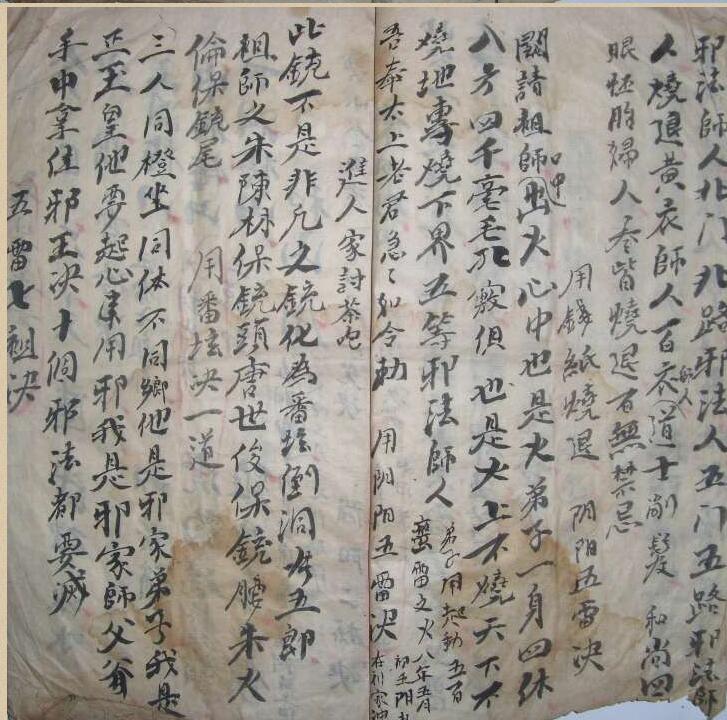 邪法師人北门北路邪法人五门五路邪法師
人燒退黃衣師人百衣道士剃髮和尚四
眼怪胎婦人夲皆燒退百無禁忌
用錢紙燒退 阴阳五雷決
闘請祖師口中出火心中也是火弟子一身四体
八方四千毫毛孔竅俱也是火上不燒天下不
燒地專燒下界五等邪法師人
弟子用起動五百
蛮雷之火八年五月
吾奉太上老君急々如令勅 用阴阳五雷決
進人家討茶吃
此銃不是非凡之銃化為番坛倒洞五郎
祖師之朱陳林保銃頭唐世俊保銃腰朱火
倫保銃尾 用番坛決一道
三人同橙坐同体不同鄉他是邪家弟子我是
正玉皇他要起心来用邪我是邪家師父爺
手中拿住邪王決十個邪法都要滅
五雷七祖決